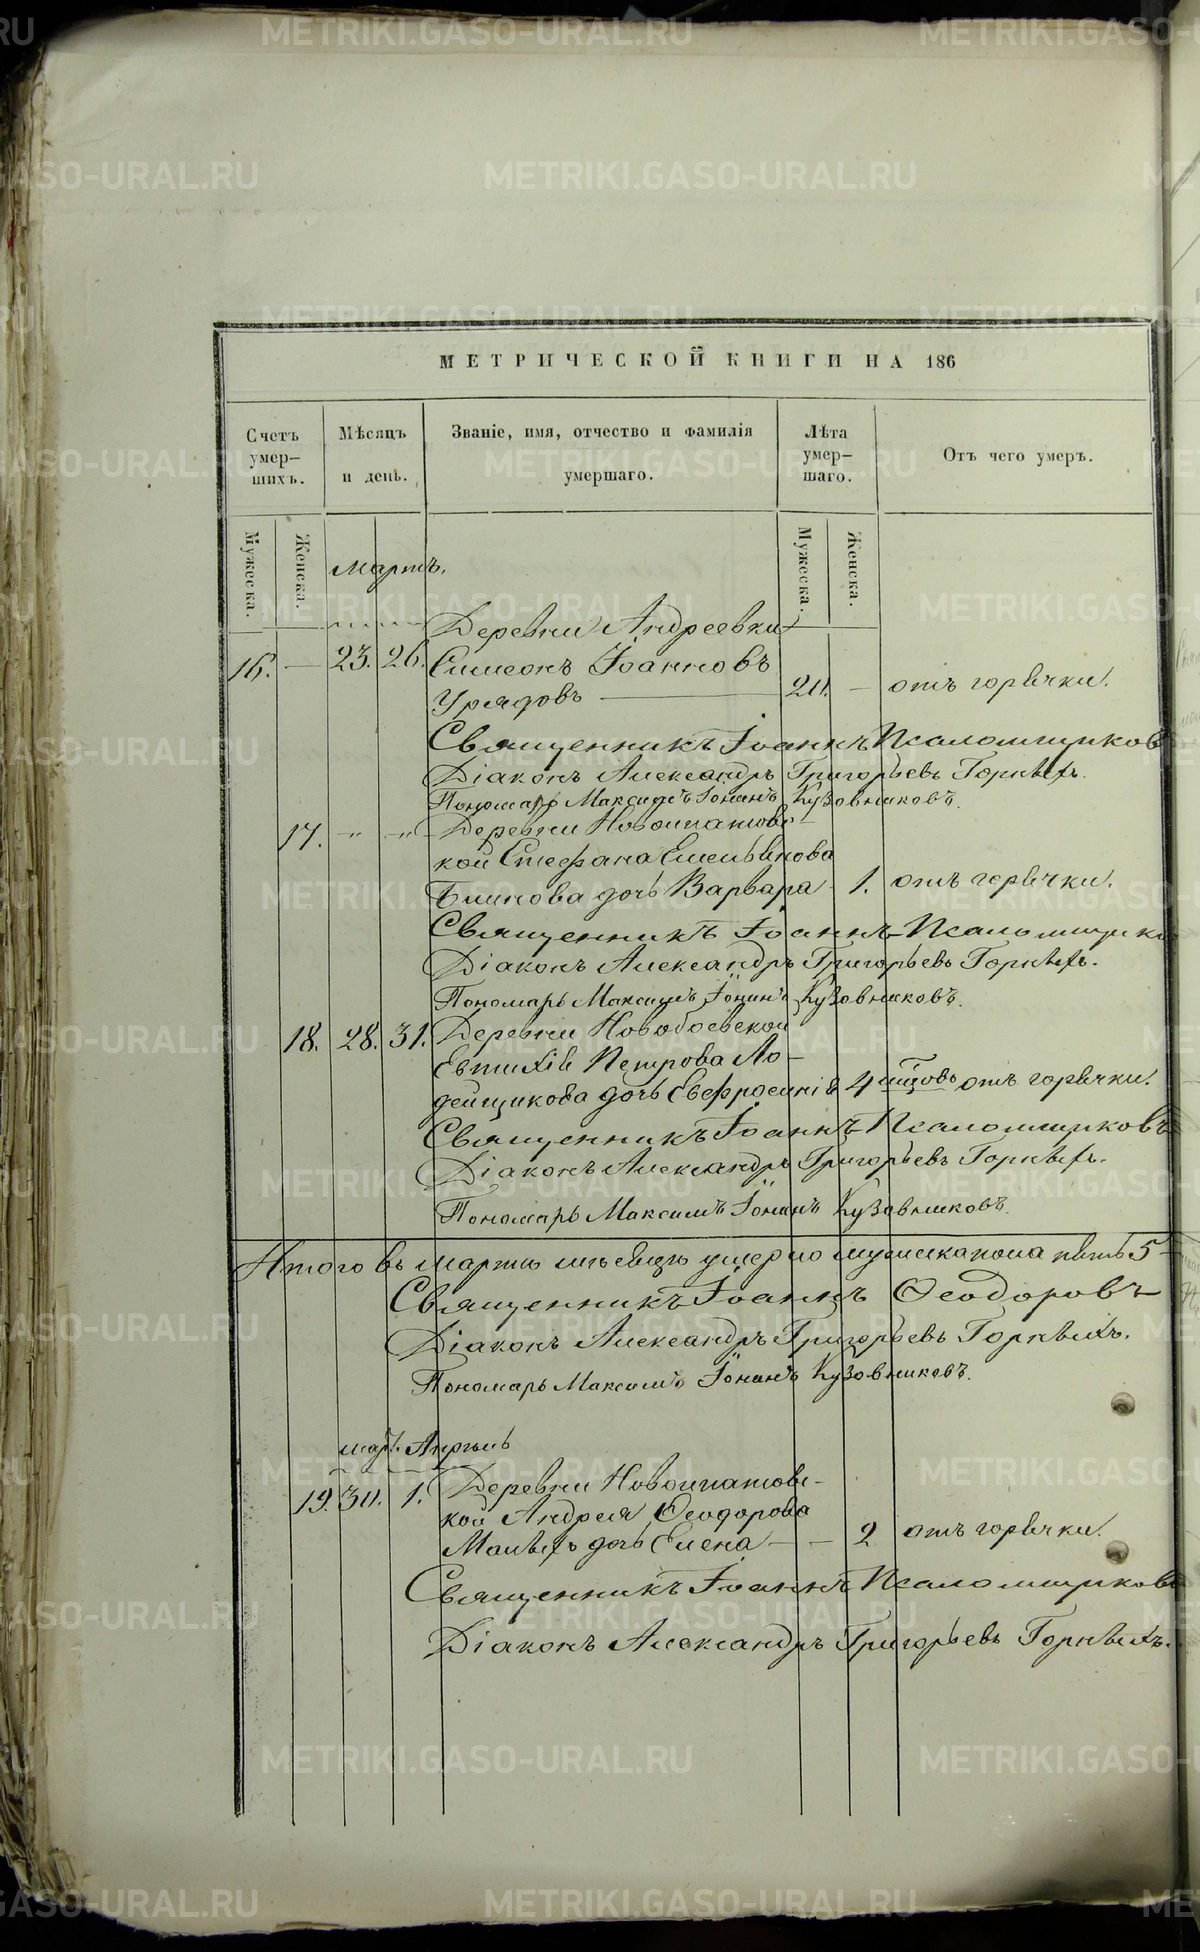 МЕТРИЧЕСКОЙ КНИГИ НА 186
Счетъ умер- шихъ.
Мѣсяцъ и день.
Званіе, имя, отчество и фамилія умершаго.
Лѣта умер- шаго.
Отъ чего умеръ.
Мужеска. Женска. Мужеска. Женска.
Мартъ.
Деревни Андреевки
16. — 23. 26. Симеонъ Іоанновъ
Урядовъ — 20. — отъ горячки.
Священникъ Іоаннъ Псаломщиковъ
Діаконъ Александръ Григорьевъ Горныхъ.
Пономарь Максимъ Іонинъ Кузовниковъ.
17. " " Деревни Новоипатовс-
кой Стефана Емельянова
дочь Варвара 1. отъ горячки.
Священникъ Іоаннъ Псаломщиков
Діаконъ Александръ Григорьевъ Горныхъ.
Пономарь Максимъ Іонинъ Кузовниковъ.
18. 28. 31. Деревни Новобоевской
Евтихія Петрова Ло-
дейщикова дочь Евфросинія 4 отъ горячки.
Священникъ Іоаннъ Псаломщиковъ
Діаконъ Александръ Григорьевъ Горныхъ.
Пономарь Максимъ Іонинъ Кузовниковъ.
Итого въ мартѣ мѣсяцѣ умерло мужеска пола пять 5
Священникъ Іоаннъ Ѳеодоровъ
Діаконъ Александръ Григорьевъ Горныхъ.
Пономарь Максимъ Іонинъ Кузовниковъ.
мар. Апрѣль
19. 30. 1. Деревни Новоипатовс-
кой Андрея Ѳеодорова
Малыхъ дочь Елена — — 2 отъ горячки.
Священникъ Іоаннъ Псаломщиковъ
Діаконъ Александръ Григорьевъ Горныхъ.
METRIKI.GASO-URAL.RU